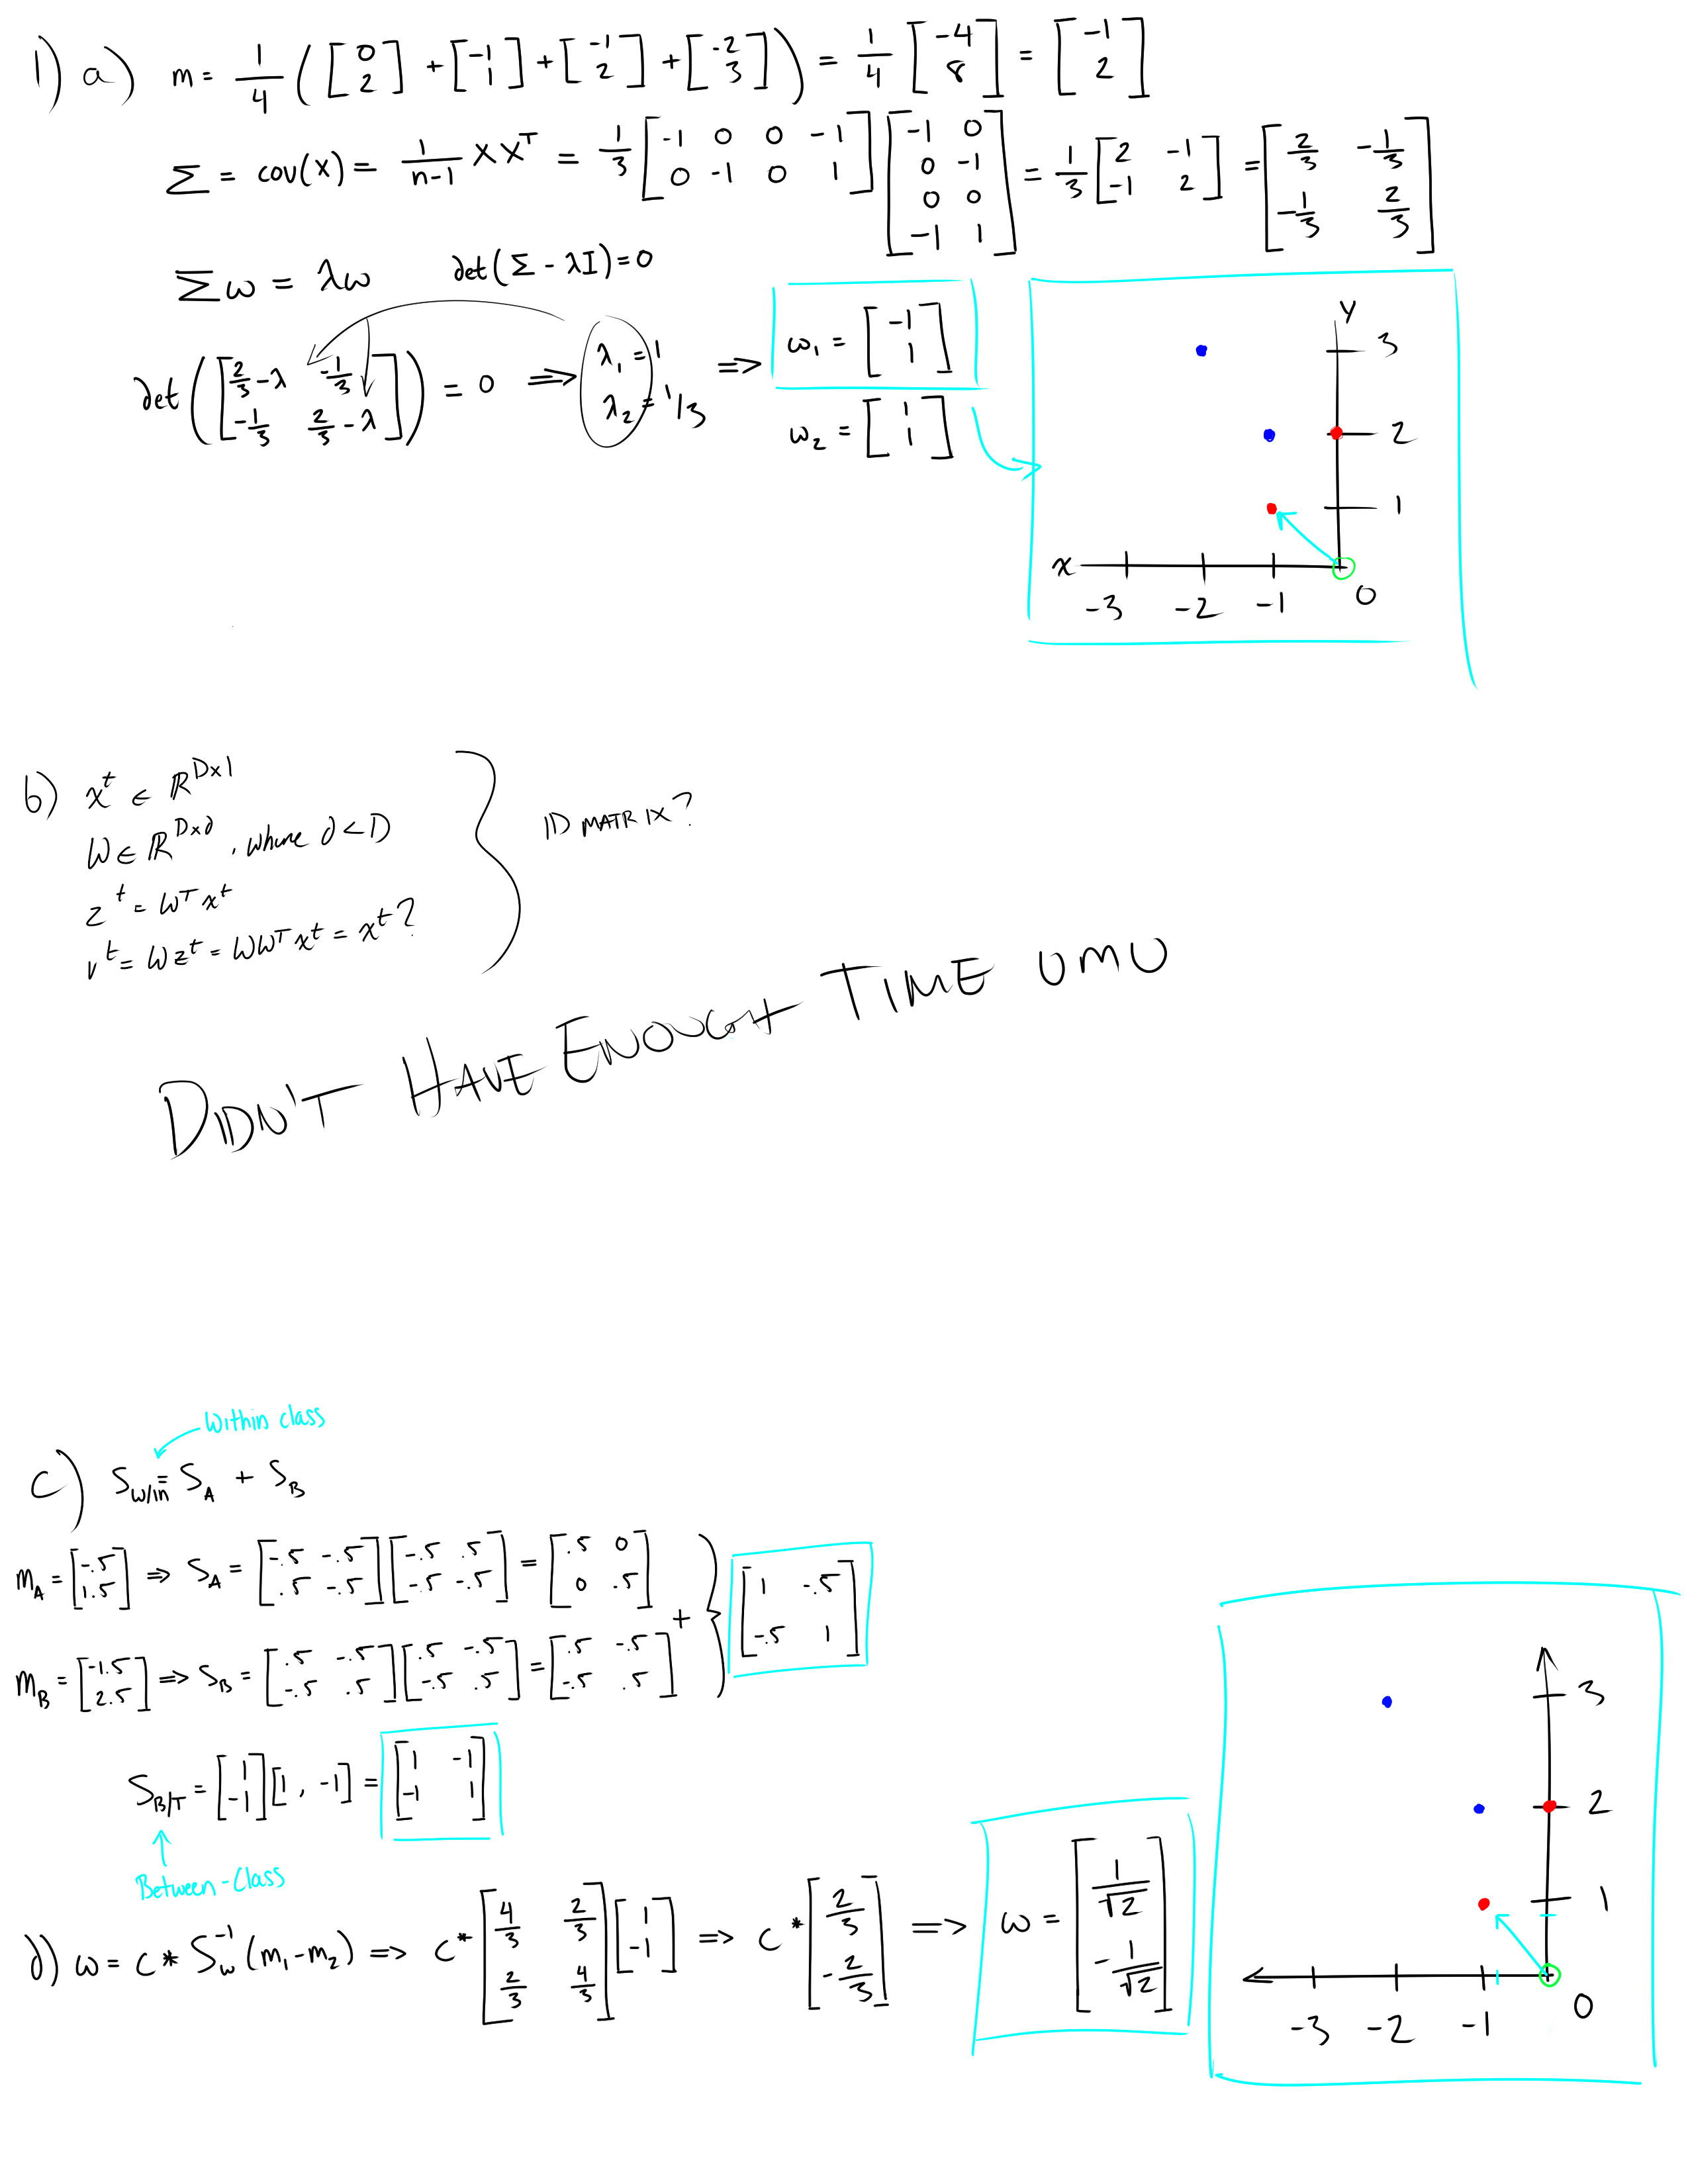 1) a) m = 1/4 ([0 2] + [-1 1] + [-1 2] + [-2 3]) = 1/4 [-4 8] = [-1 2]
Σ = cov(x) = 1/(n-1) XX^T = 1/3 [-1 0 0 -1; 0 -1 0 1] [-1 0; 0 -1; 0 0; -1 1] = 1/3 [2 -1; -1 2] = [2/3 -1/3; -1/3 2/3]
Σω = λω det(Σ - λI) = 0
det([2/3-λ -1/3; -1/3 2/3-λ]) = 0 ⇒ λ₁ = 1 λ₂ = 1/3 ⇒ ω₁ = [-1 1]
ω₂ = [1 1]
y
3
2
1
x
-3 -2 -1 0
b) x^t ∈ ℝ^(D×1)
W ∈ ℝ^(D×d), where d < D
z^t = W^T x^t
v^t = Wz^t = WW^T x^t = x^t?
ID MATRIX?
DIDN'T HAVE ENOUGH TIME UMU
Within class
c) S_w/in = S_A + S_B
m_A = [-.5 1.5] ⇒ S_A = [-.5 -.5; .5 -.5] [-.5 .5; -.5 -.5] = [.5 0; 0 .5]
+ } [1 -.5; -.5 1]
m_B = [-1.5 2.5] ⇒ S_B = [.5 -.5; -.5 .5] [.5 -.5; -.5 .5] = [.5 -.5; -.5 .5]
S_B/T = [1 -1] [1, -1] = [1 -1; -1 1]
Between-Class
d) ω = c* S_w^-1 (m₁-m₂) ⇒ c* [4/3 2/3; 2/3 4/3] [1 -1] ⇒ c* [2/3 -2/3] ⇒ ω = [1/√2 -1/√2]
3
2
1
-3 -2 -1 0